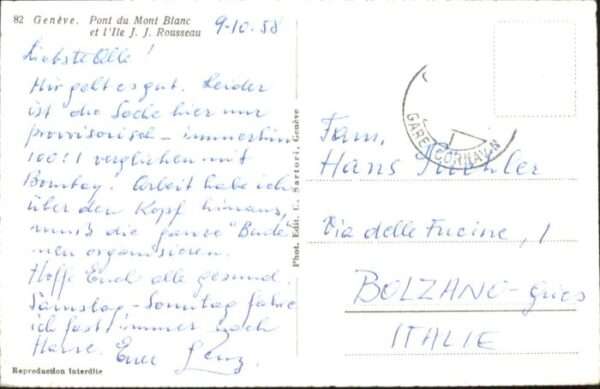 82 Genève. Pont du Mont Blanc
et l'Ile J. J. Rousseau
9-10.58
Liebste alle!
Mir geht es gut. Leider
ist die Sache hier nur
provisorisch - immerhin
100:1 verglichen mit
Bombay. Arbeit habe ich
über den Kopf hinaus,
muß die ganze "Bude"
neu organisieren.
Hoffe Euch alle gesund.
Samstag-Sonntag fahre
ich fast immer nach
Hause. Euer
Reproduction interdite
Phot. Edit. C. Sartori, Genève
GARE CORNAVIN
Fam.
Hans
Via delle Fucine, 1
BOLZANO-Gries
ITALIE